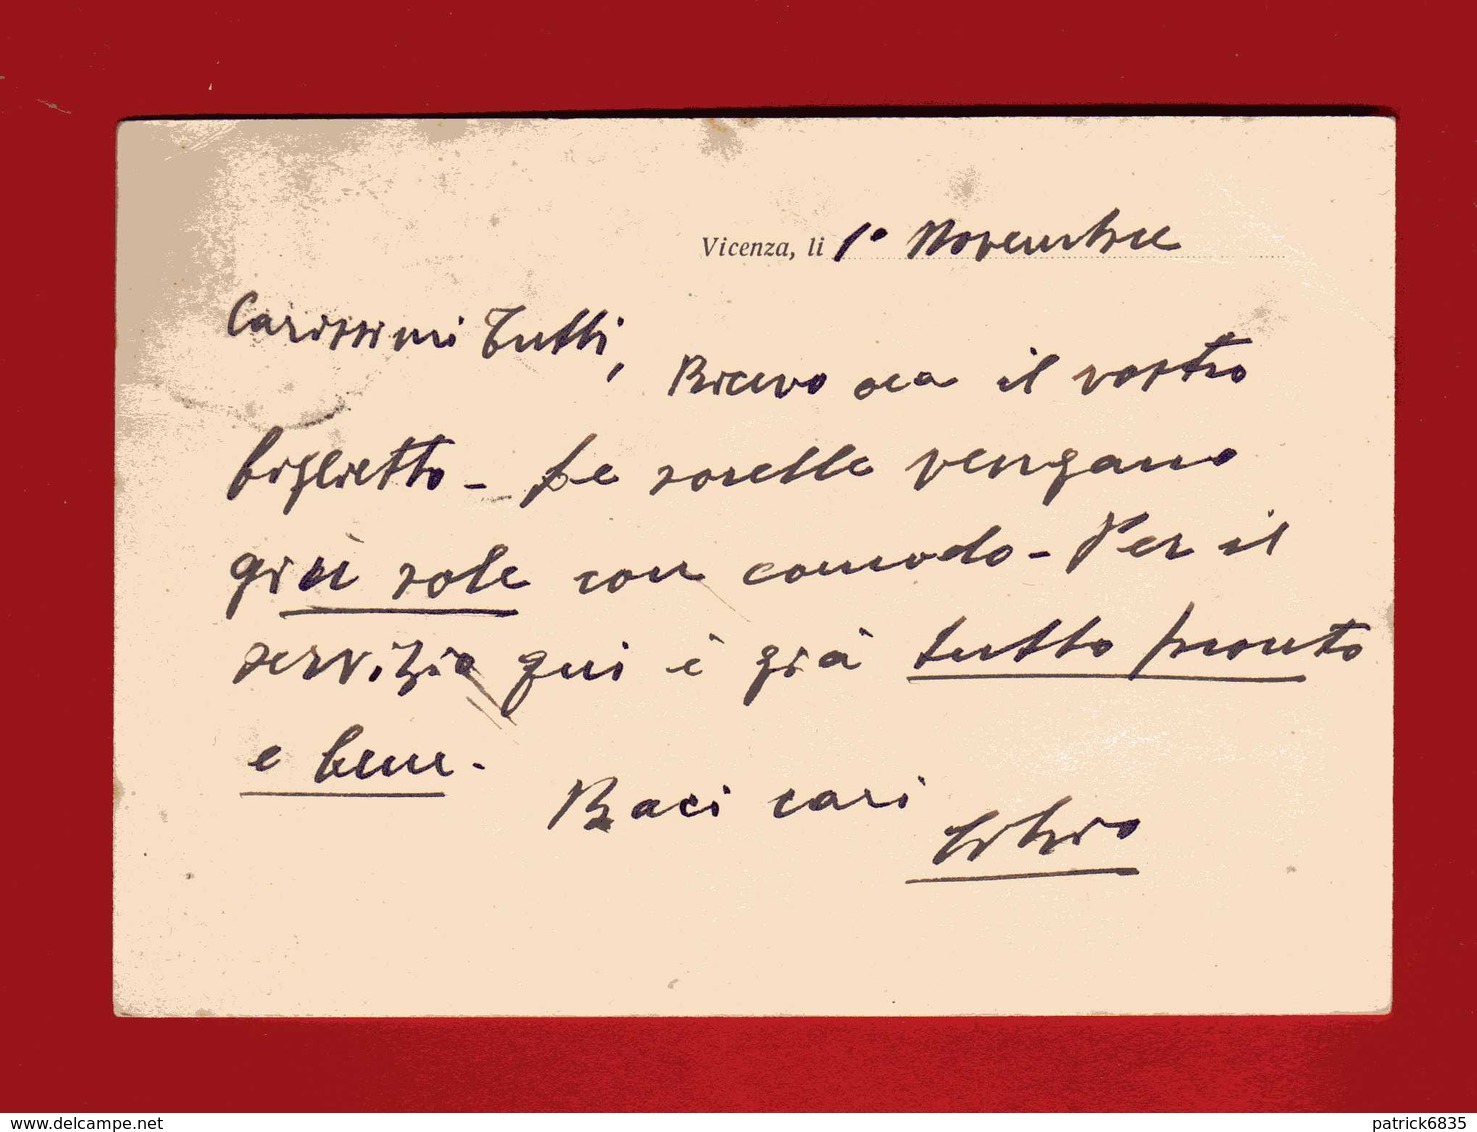 Vicenza, li 1° Novembre
Carissimi Tutti,
Ricevo ora il vostro
biglietto - Le sorelle vengano
giù sole con comodo - Per il
servizio qui è già tutto pronto
e bene -
Baci cari
delcampe.net
patrick6835